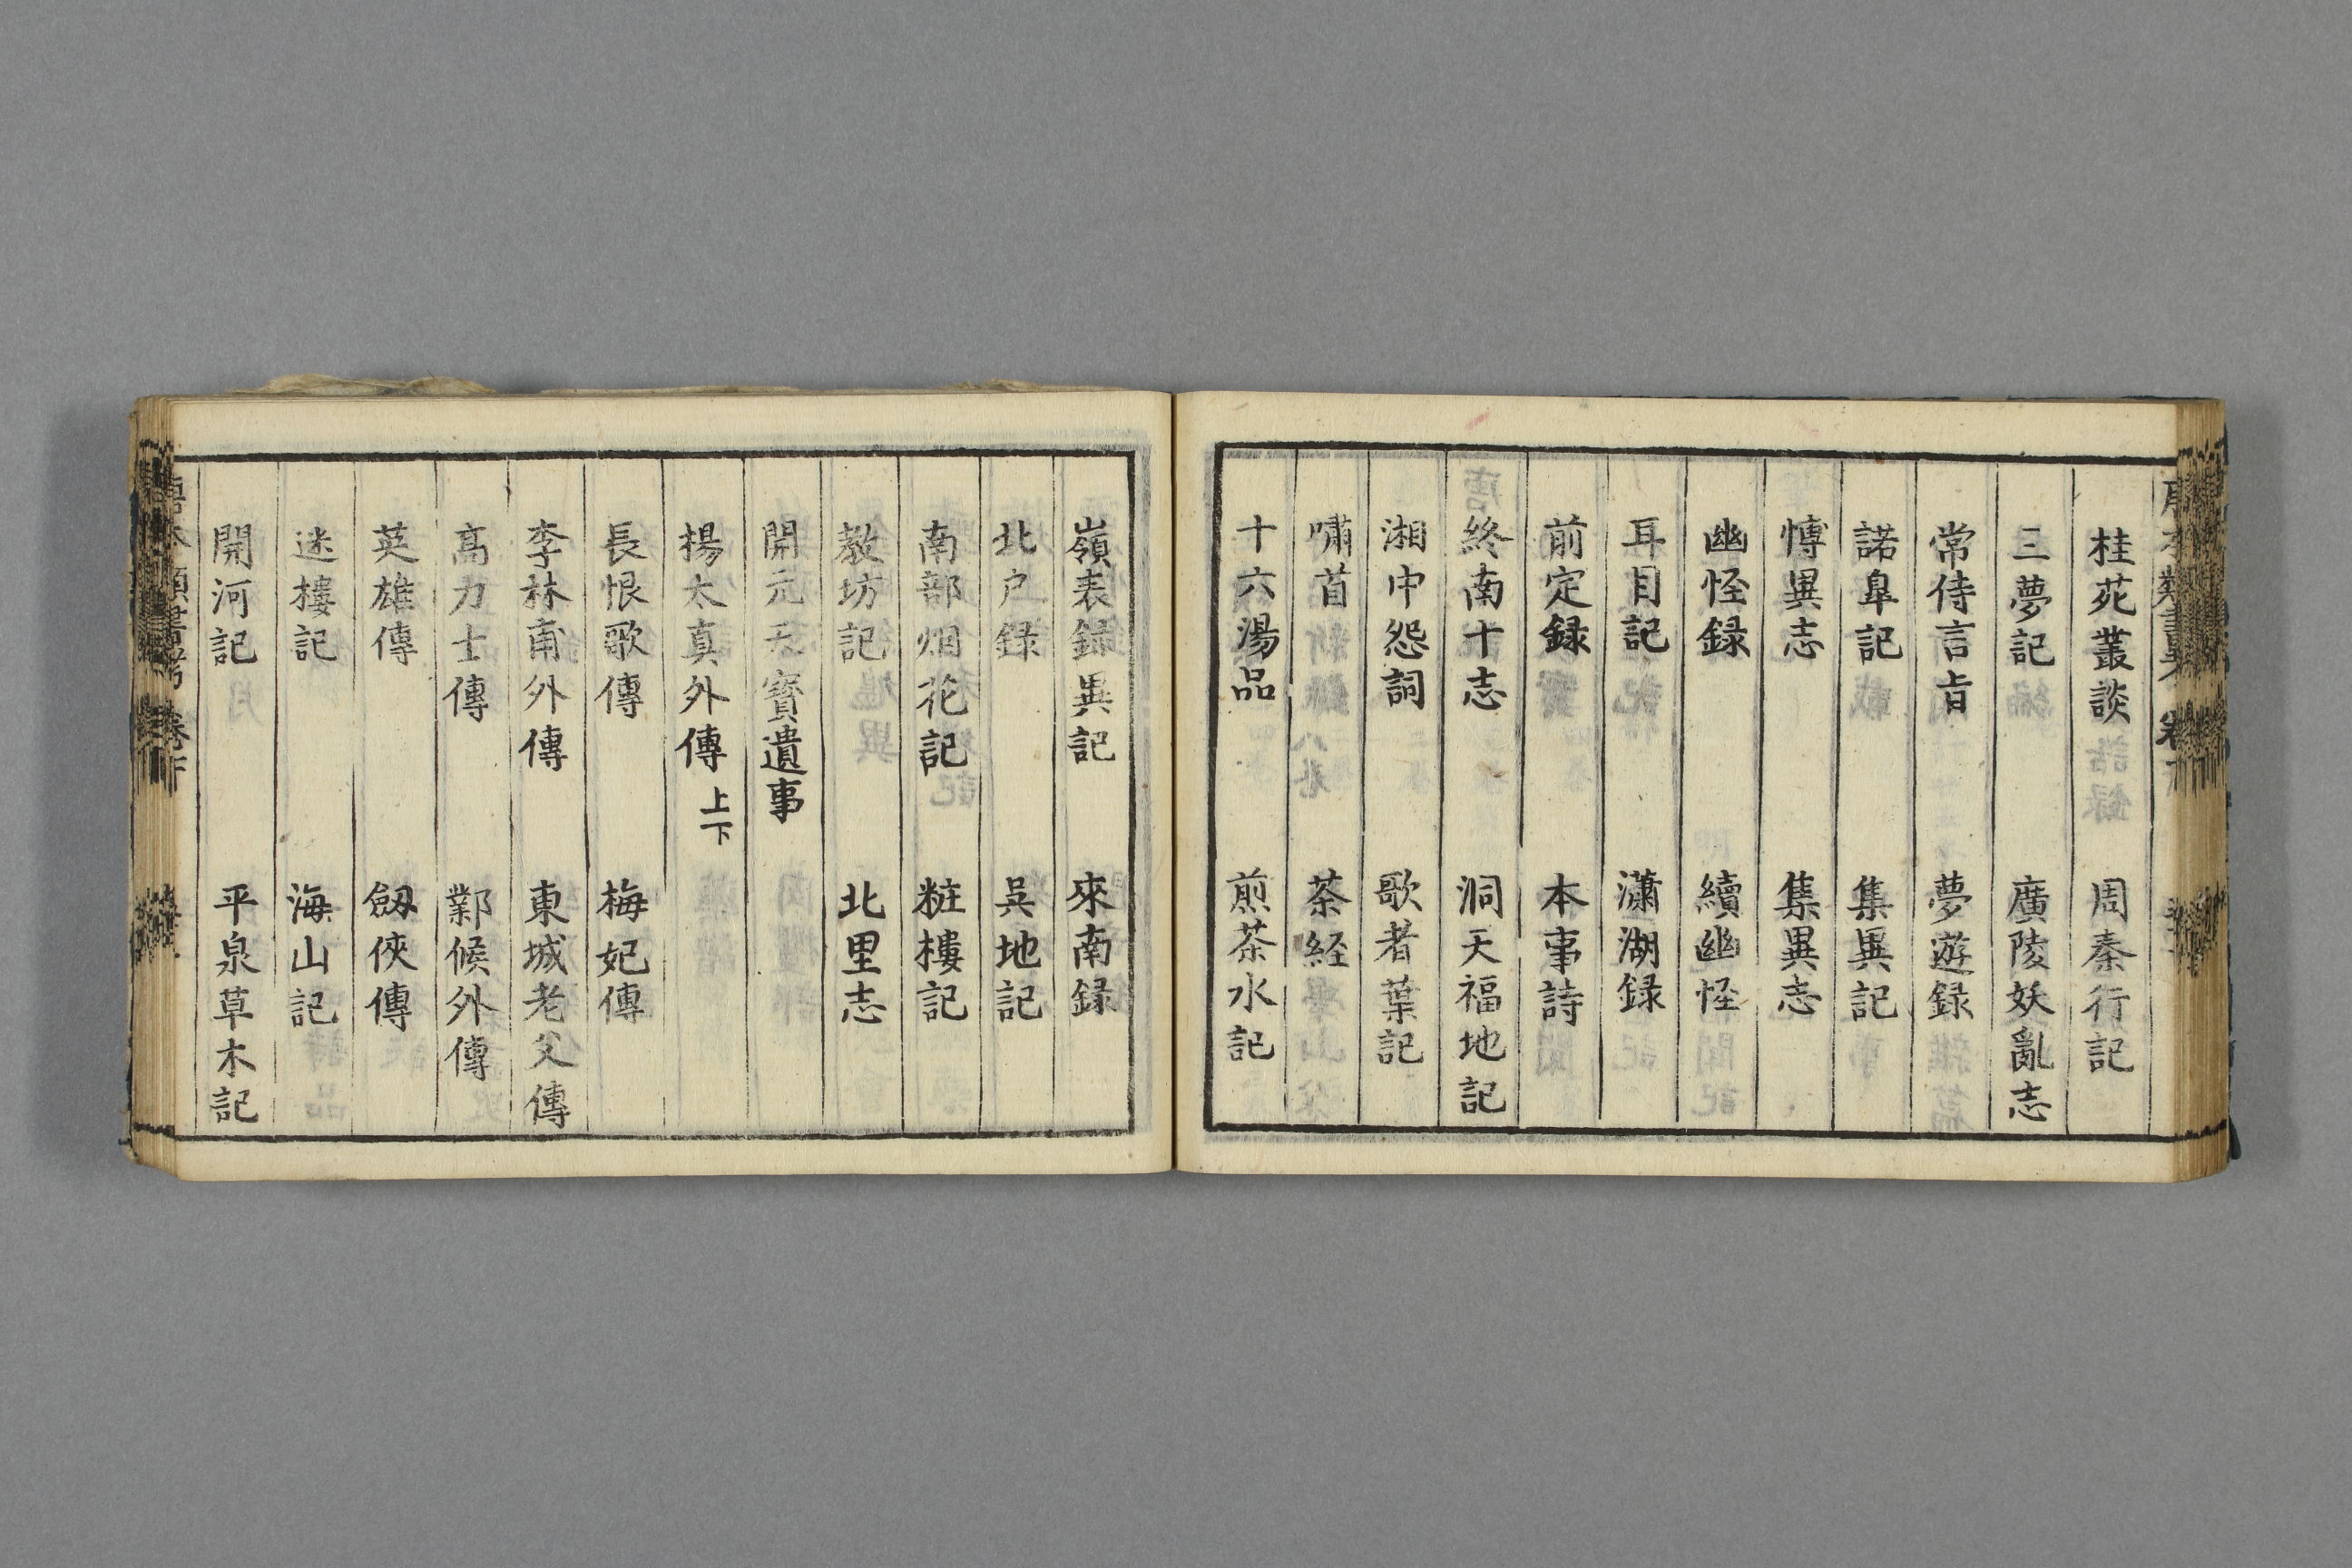 桂苑叢談　周秦行記
三夢記　廣陵妖亂志
常侍言旨　夢遊録
諾皐記　集異記
愽異志　集異志
幽怪録　續幽怪
耳目記　瀟湖録
前定録　本事詩
終南十志　洞天福地記
湘中怨詞　歌者葉記
嘯首　茶経
十六湯品　煎茶水記
嶺表録異記　來南録
北户録　吳地記
南部烟花記　粧樓記
教坊記　北里志
開元天寳遺事
楊太真外傳上下
長恨歌傳　梅妃傳
李林甫外傳　東城老父傳
高力士傳　鄴候外傳
英雄傳　劔俠傳
迷樓記　海山記
開河記　平泉草木記